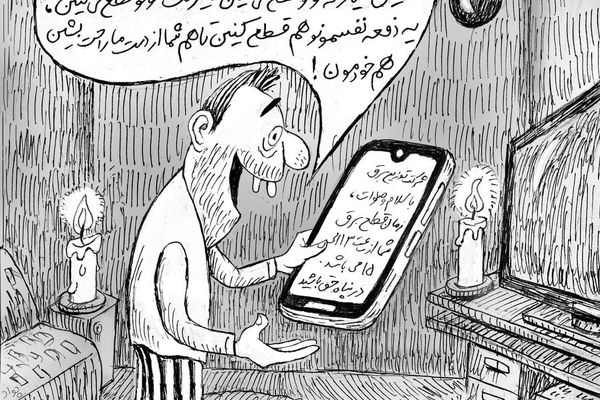 یه دفعه نفسمونو هم قطع کنین تا هم شما از دست ما راحت بشین
هم خودمون !
شرکت توزیع برق
با سلام و صلوات ،
زمان قطع برق
شما از ساعت ۱۳ الی
۱۵ می باشد .
در پناه حق باشید